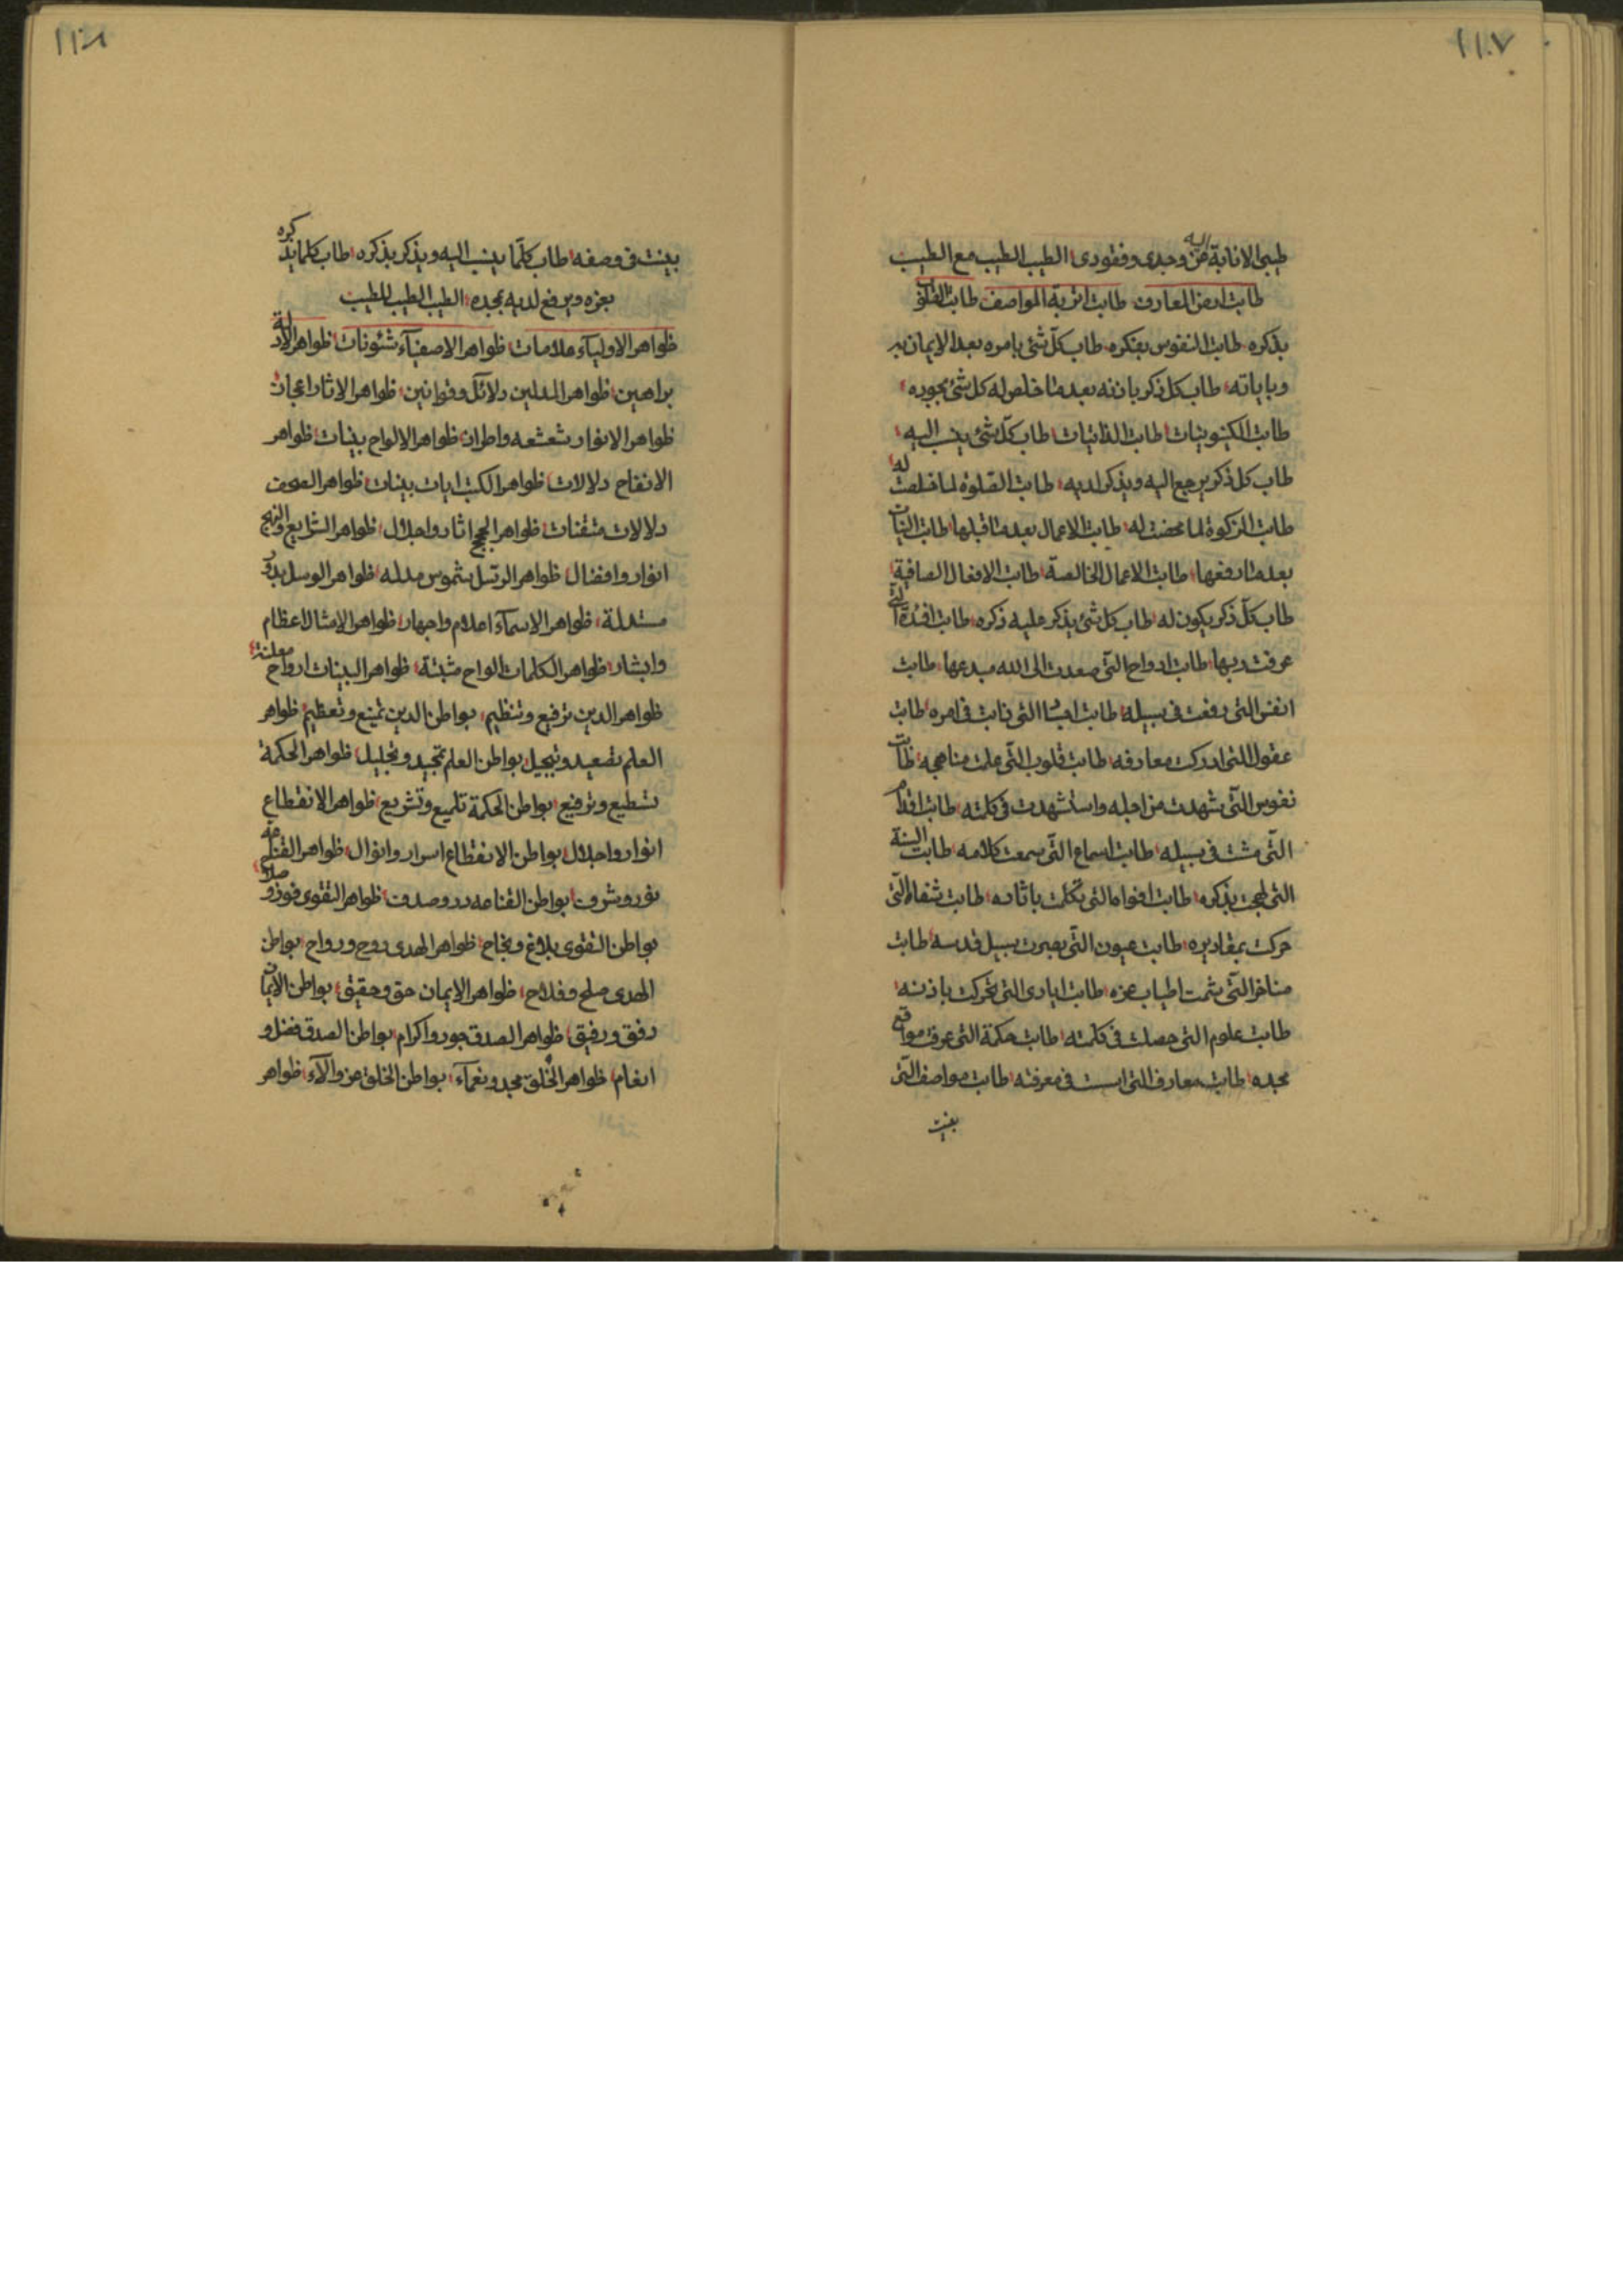 ١١٠٧
طيبى الانابة اليه عن وجدى وفقودى الطيب الطيب مع الطيب
طابت ارض المعارف طابت اتربة المواصف طابت القلوب
بذكره طابت النفوس بفكره طاب كل شئ بامره بعد الايمان به
وباياته طاب كل ذكر باذنه بعد ما خلص له كل شئ بجوده
طابت الكينونيات طابت الذاتيات طاب كل شئ ينسب اليه
طاب كل ذكر يرجع اليه ويذكر لديه طابت الصلوة لما خلصت له
طابت الزكوة لما محضت له طابت الاعمال بعد ما قبلها طابت النيات
بعد ما رفعها طابت الاعمال الخالصة طابت الافعال الصافية
طاب كل ذكر يكون له طاب كل شئ يذكر عليه ذكره طابت افئدة التى
عرفت ربها طابت ارواح التى صعدت الى الله مبدعها طابت
انفس التى رفعت فى سبيله طابت اجساد التى ذابت فى امره طابت
عقول التى ادركت معارفه طابت قلوب التى علمت مناهجه طابت
نفوس التى شهدت من اجله واستشهدت فى كلمته طابت اقدام
التى مشت فى سبيله طابت اسماع التى سمعت كلامه طابت السنة
التى لهجت بذكره طابت افواه التى تكلمت باثاره طابت شفاه التى
حركت بمقاديره طابت عيون التى بصرت سبيل قدسه طابت
مناخر التى شمت اطياب عزه طابت ايادى التى تحركت باذنه
طابت علوم التى حصلت فى كلمته طابت حكمة التى عرفت مواقع
مجده طابت معارف التى اسست فى معرفته طابت مواصف التى
بينت
١١٠٨
بينت فى وصفه طاب كلما ينسب اليه ويذكر بذكره طاب كلما يذكره
بعزه ويرفع لديه بمجده الطيب الطيب للطيب
ظواهر الاولياء علامات ظواهر الاصفياء شئونات ظواهر الادلة
براهين ظواهر المدلين دلائل وقوانين ظواهر الاثار اعجاز
ظواهر الانوار شعشعه واطراز ظواهر الالواح بينات ظواهر
دلالات ظواهر الكتب ايات بينات ظواهر الصحف
دلالات متقنات ظواهر الحجج اثار واجلال ظواهر الشرايع والنهج
انوار وافضال ظواهر الرسل شموس مدله ظواهر الوسل بدور
مستدلة ظواهر الاسماء اعلام واجهار ظواهر الامثال اعظام
وابشار ظواهر الكلمات الواح مثبتة ظواهر البينات ارواح معلنة
ظواهر الدين ترفيع وتنظيم بواطن الدين تمنيع وتعظيم ظواهر
العلم تصعيد وتبجيل بواطن العلم تمجيد وتجليل ظواهر الحكمة
تسطيع وترفيع بواطن الحكمة تلميع وتشريع ظواهر الانقطاع
انوار واجلال بواطن الانقطاع اسرار وانوال ظواهر القناعه
نور وشرف بواطن القناعه درر وصدف ظواهر التقوى فوز وصلاح
بواطن التقوى بلاغ ونجاح ظواهر الهدى روح ورواح بواطن
الهدى صلح وفلاح ظواهر الايمان حق وحقيق بواطن الايمان
رفق ورفيق ظواهر الصدق جود واكرام بواطن الصدق فضل و
انعام ظواهر الخلق مجد ونعماء بواطن الخلق عز والآء ظواهر